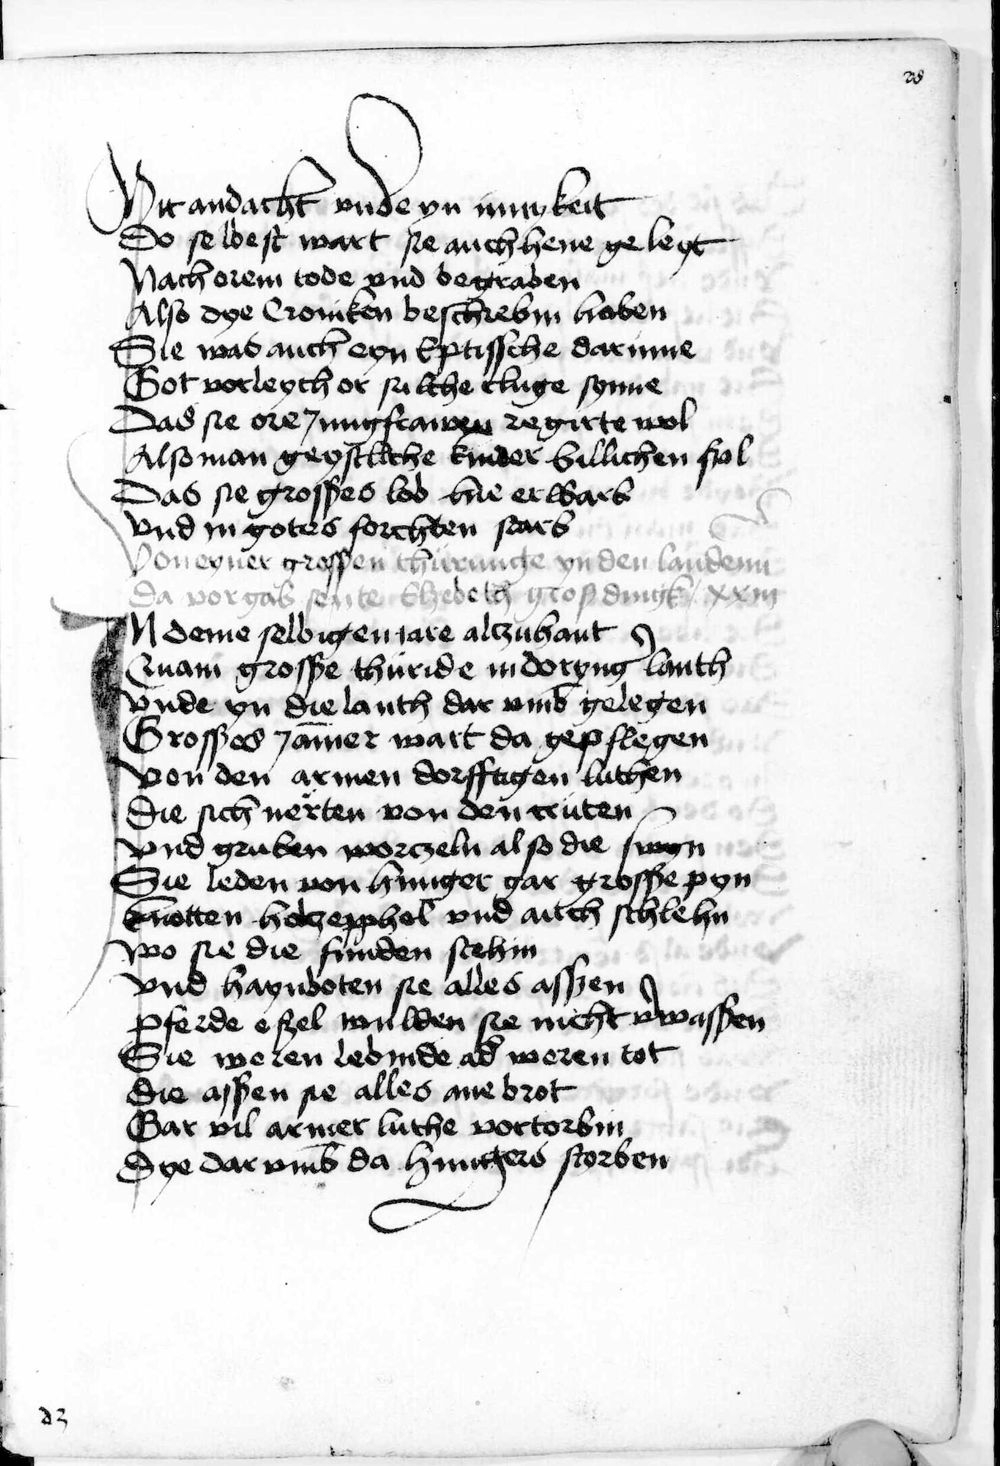 28
Mit andacht vnde yn innykeit
Do selbest wart sie auch hene geleyt
Nach orem tode vnd begraben
Also dye Croniken beschrebin haben
Sie was auch eyn Eptissche darinne
Got vorleych or sulche kluge synne
Das sie ore jungfrawen regirte wol
Also man geystliche kinder billichen sol
Das sie grosses lob hie erwarb
Vnd in gotes forchten starb
Von eyner grossen thurunge yn den landenn
da vorgab sente Elzebeth gros dingk / xxiii
IN deme selbigen iare alczuhant
Quam grosse thuride in doryng lanth
Vnde yn die lanth dar vmb gelegen
Grosses jam̄er wart da gepflegen
Von den armen dorfftigen luthen
Die sich nerten von den cruten
Vnd gruben worczeln also die swyn
Sie leden von hunger gar grosse pyn
knotten holczepphel vnd auch schlehn
wo sie die funden stehin
Vnd haynboten sie alles assen
Pferde eszel wulden sie nicht vorwassen
Sie weren lebinde ad weren tot
Die assen sie alles ane brot
Gar vil armer luthe vortorbin
Dye dar vmb da hungers storben
d3